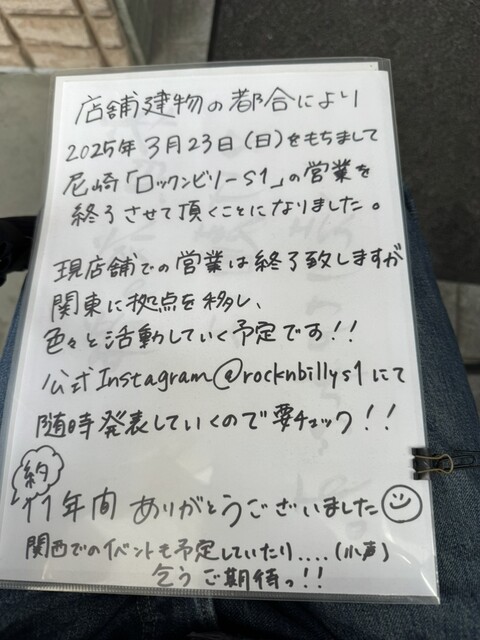 店舗建物の都合により
2025年3月23日(日)をもちまして
尼崎「ロックンビリーS1」の営業を
終了させて頂くことになりました。
現店舗での営業は終了致しますが
関東に拠点を移し、
色々と活動していく予定です!!
公式Instagram@rocknbillys1にて
随時発表していくので要チェック!!
約
11年間ありがとうございました
関西でのイベントも予定していたり....(小声)
乞うご期待っ!!